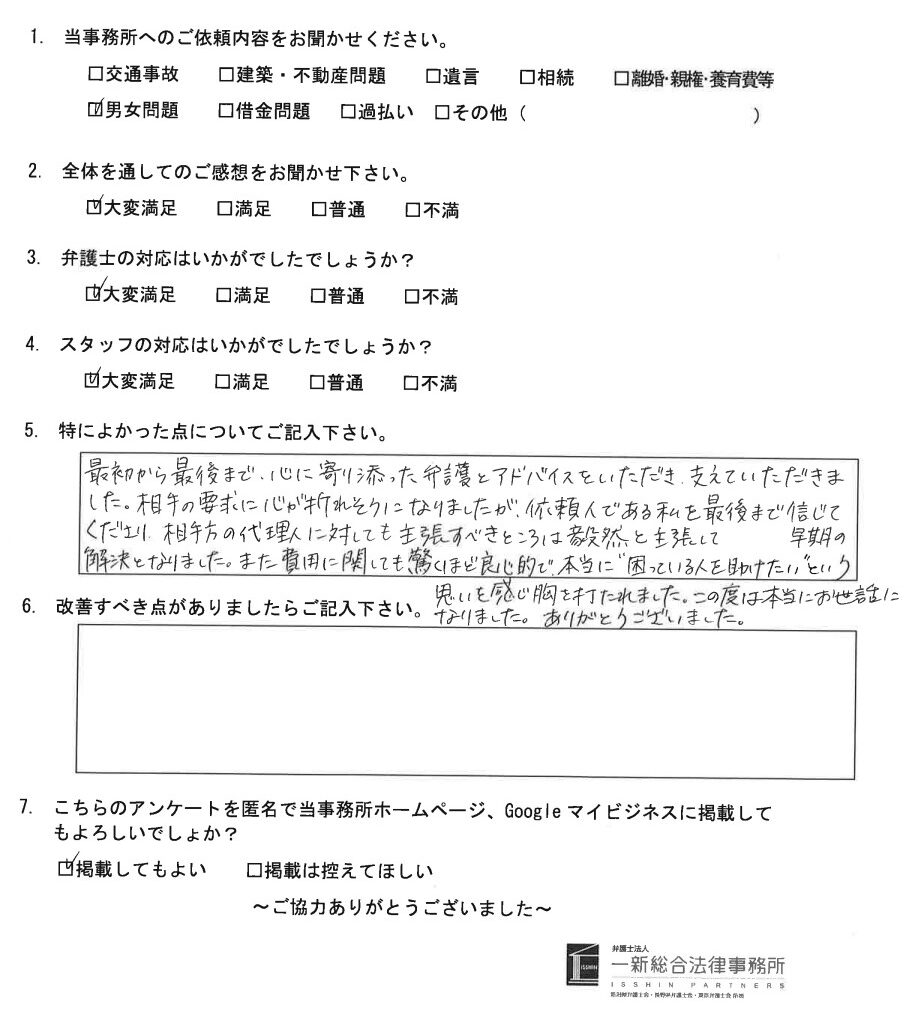 1. 当事務所へのご依頼内容をお聞かせください。
□交通事故 □建築・不動産問題 □遺言 □相続 □離婚・親権・養育費等
☑男女問題 □借金問題 □過払い □その他（ ）
2. 全体を通してのご感想をお聞かせ下さい。
☑大変満足 □満足 □普通 □不満
3. 弁護士の対応はいかがでしたでしょうか？
☑大変満足 □満足 □普通 □不満
4. スタッフの対応はいかがでしたでしょうか？
☑大変満足 □満足 □普通 □不満
5. 特によかった点についてご記入下さい。
最初から最後まで、心に寄り添った弁護とアドバイスをいただき、支えていただきま
した。相手の要求に心が折れそうになりましたが、依頼人である私を最後まで信じて
くださり、相手方の代理人に対しても主張すべきところは毅然と主張して 早期の
解決となりました。また費用に関しても驚くほど良心的で、本当に"困っている人を助けたい"という
思いを感じ胸を打たれました。この度は本当にお世話に
なりました。ありがとうございました。
6. 改善すべき点がありましたらご記入下さい。
7. こちらのアンケートを匿名で当事務所ホームページ、Google マイビジネスに掲載して
もよろしいでしょか？
☑掲載してもよい □掲載は控えてほしい
～ご協力ありがとうございました～
弁護士法人
一新総合法律事務所
ISSHIN
ISSHIN PARTNERS
新潟県弁護士会・長野県弁護士会・東京弁護士会 所属